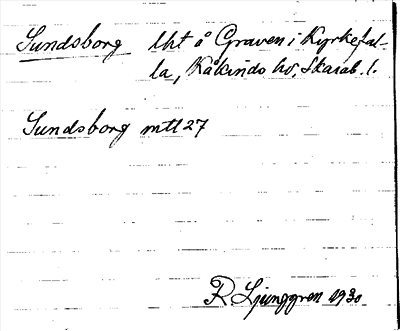 Sundsborg lht å Graven i Kyrkefal-
la, Kåkinds hd, Skarab. l.
Sundsborg mtl 27
R. Ljunggren 1930